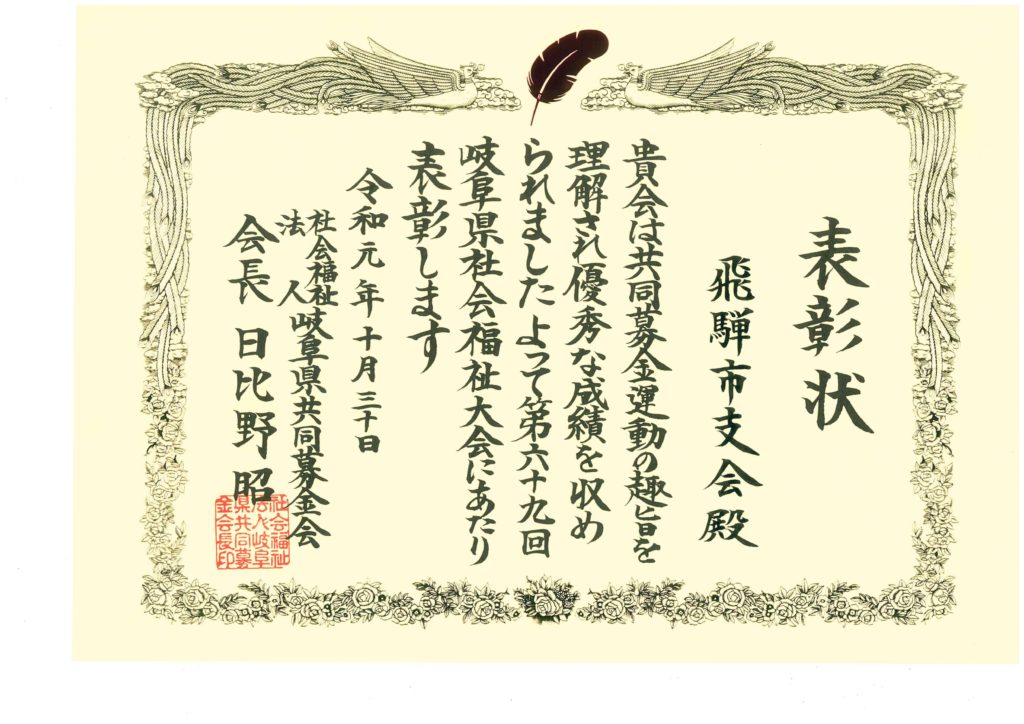 表彰状
飛騨市支会殿
貴会は共同募金運動の趣旨を
理解され優秀な成績を収め
られましたよって第六十九回
岐阜県社会福祉大会にあたり
表彰します
令和元年十月三十日
社会福祉法人岐阜県共同募金会
会長日比野昭
社会福祉
法人岐阜
県共同募
金会長印